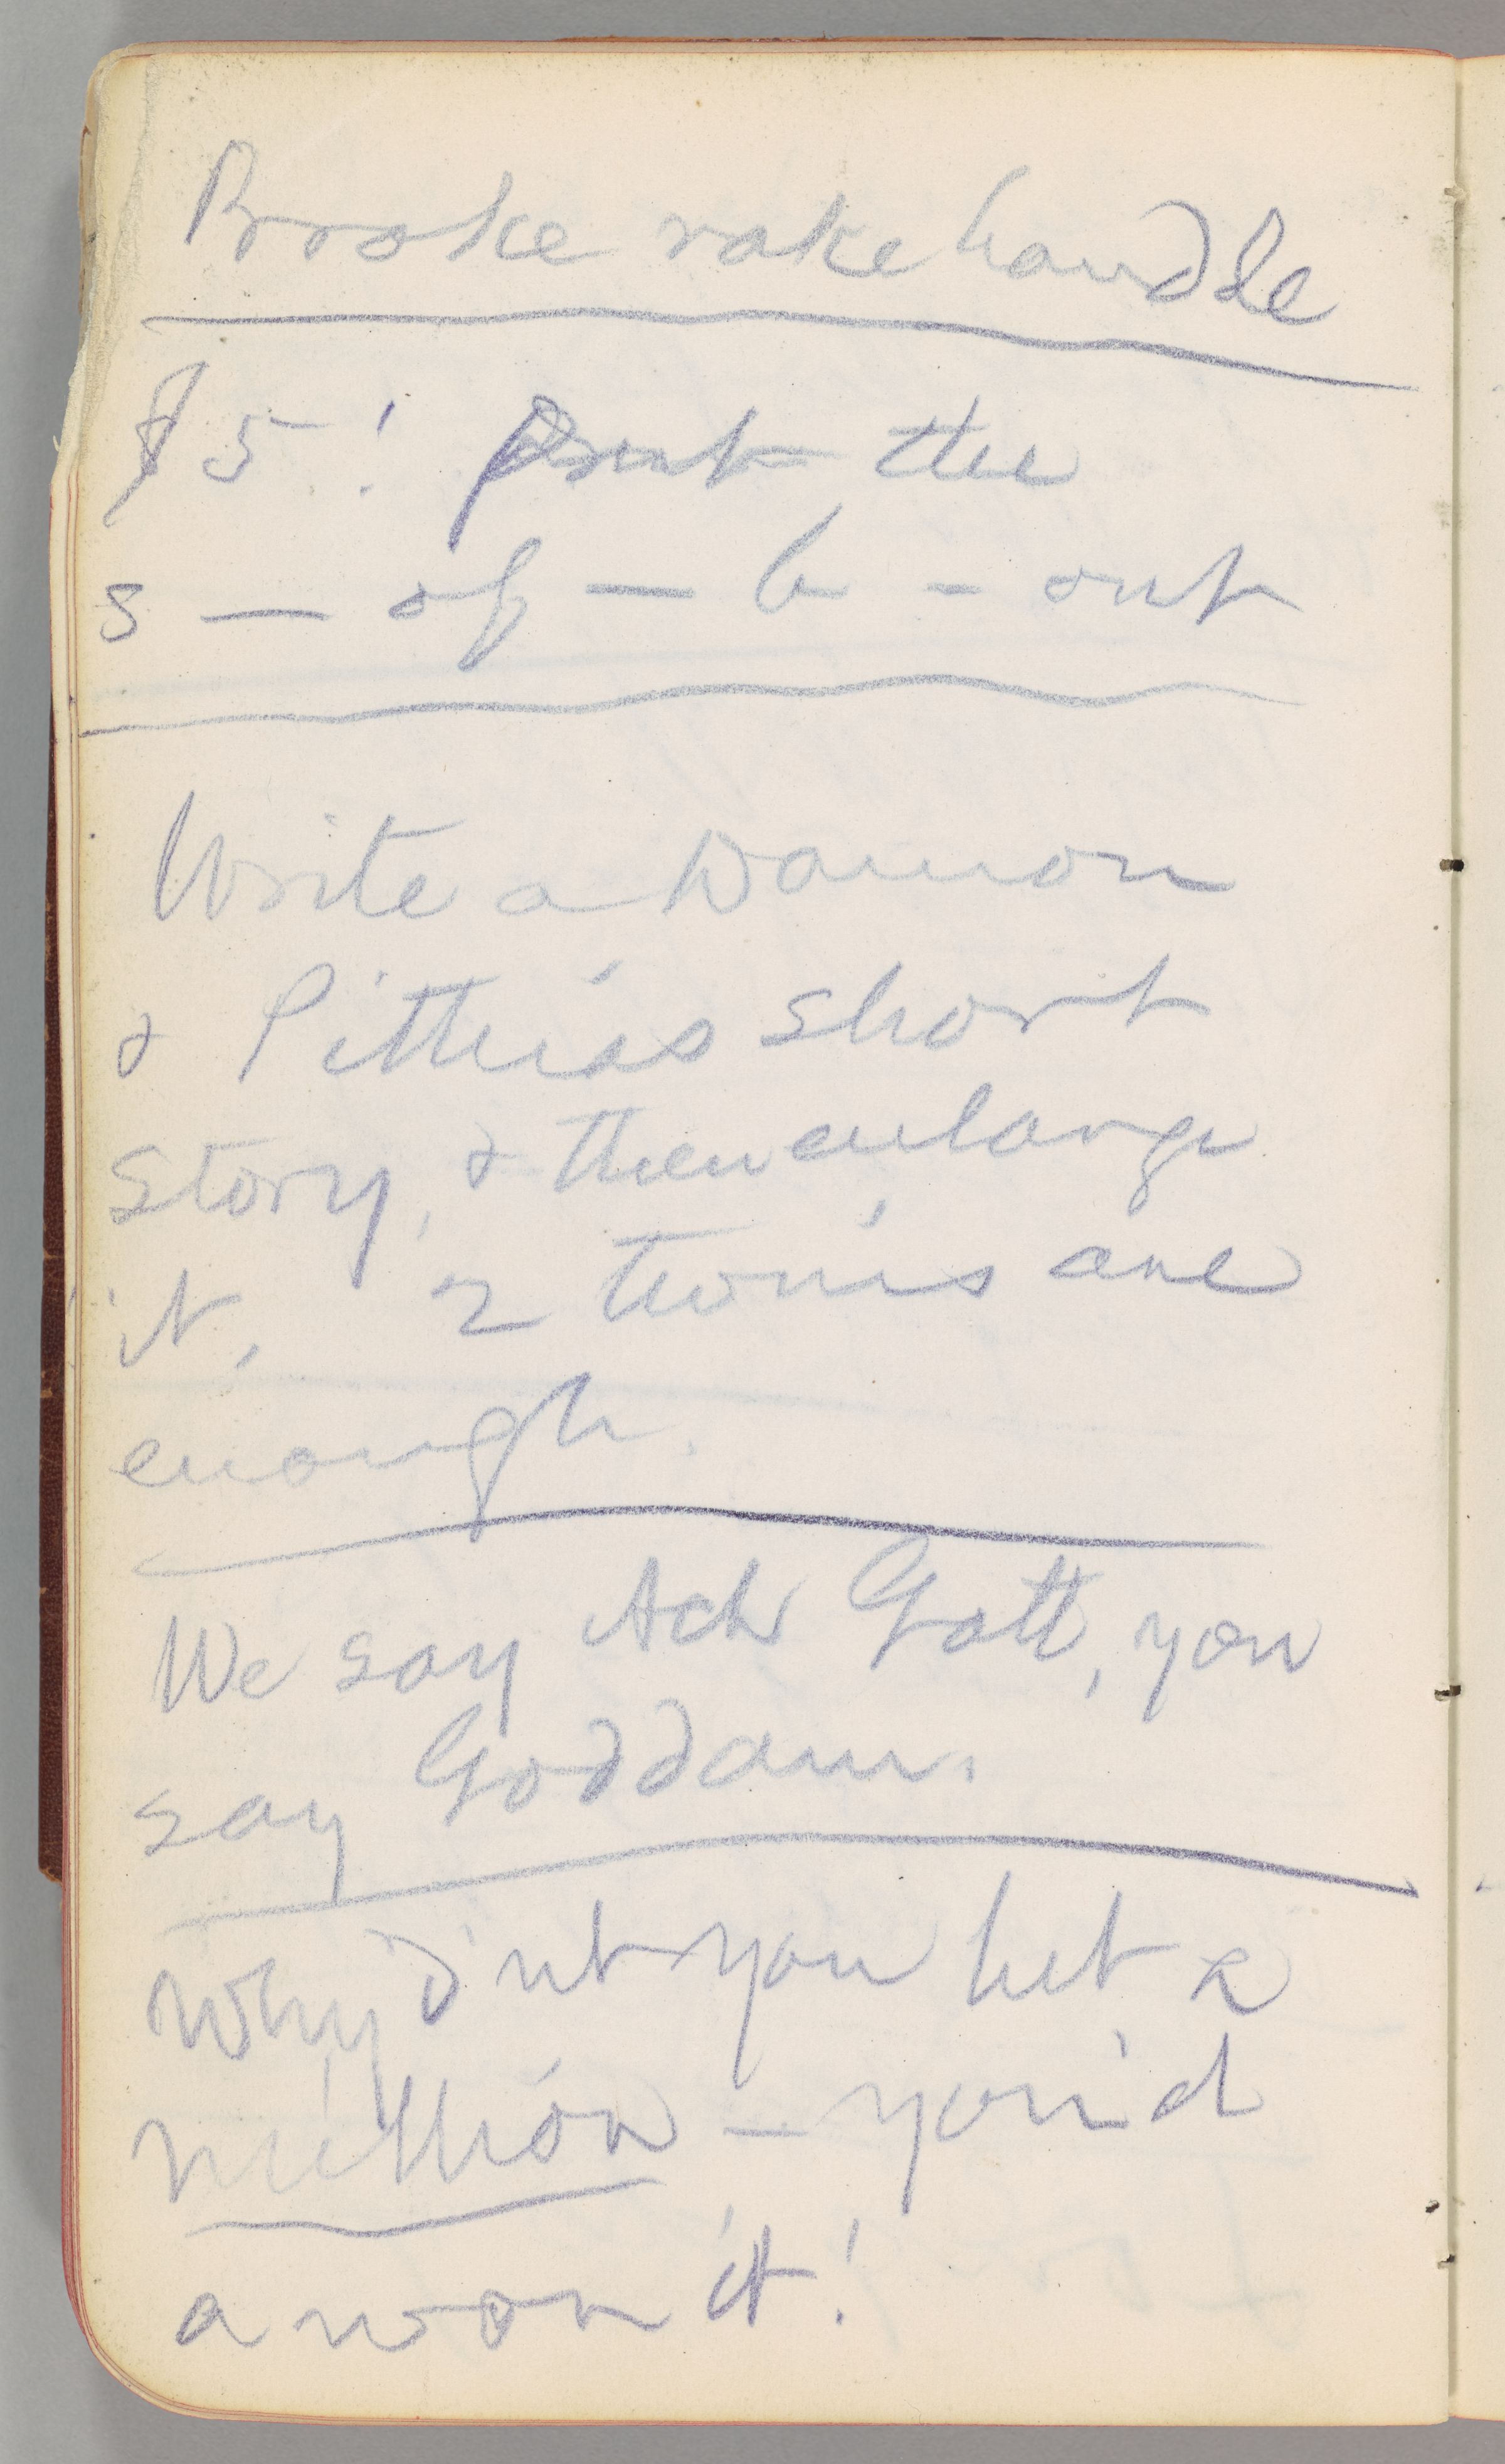 Broke rake handle
$5! the
s — of — b - out
Write a Damon
& Pithias short
story, & then enlarge
it, 2 are
enough.
We say Ach Gott, you
say Goddam.
Why d'nt you bet a
million — you'd
a won it!